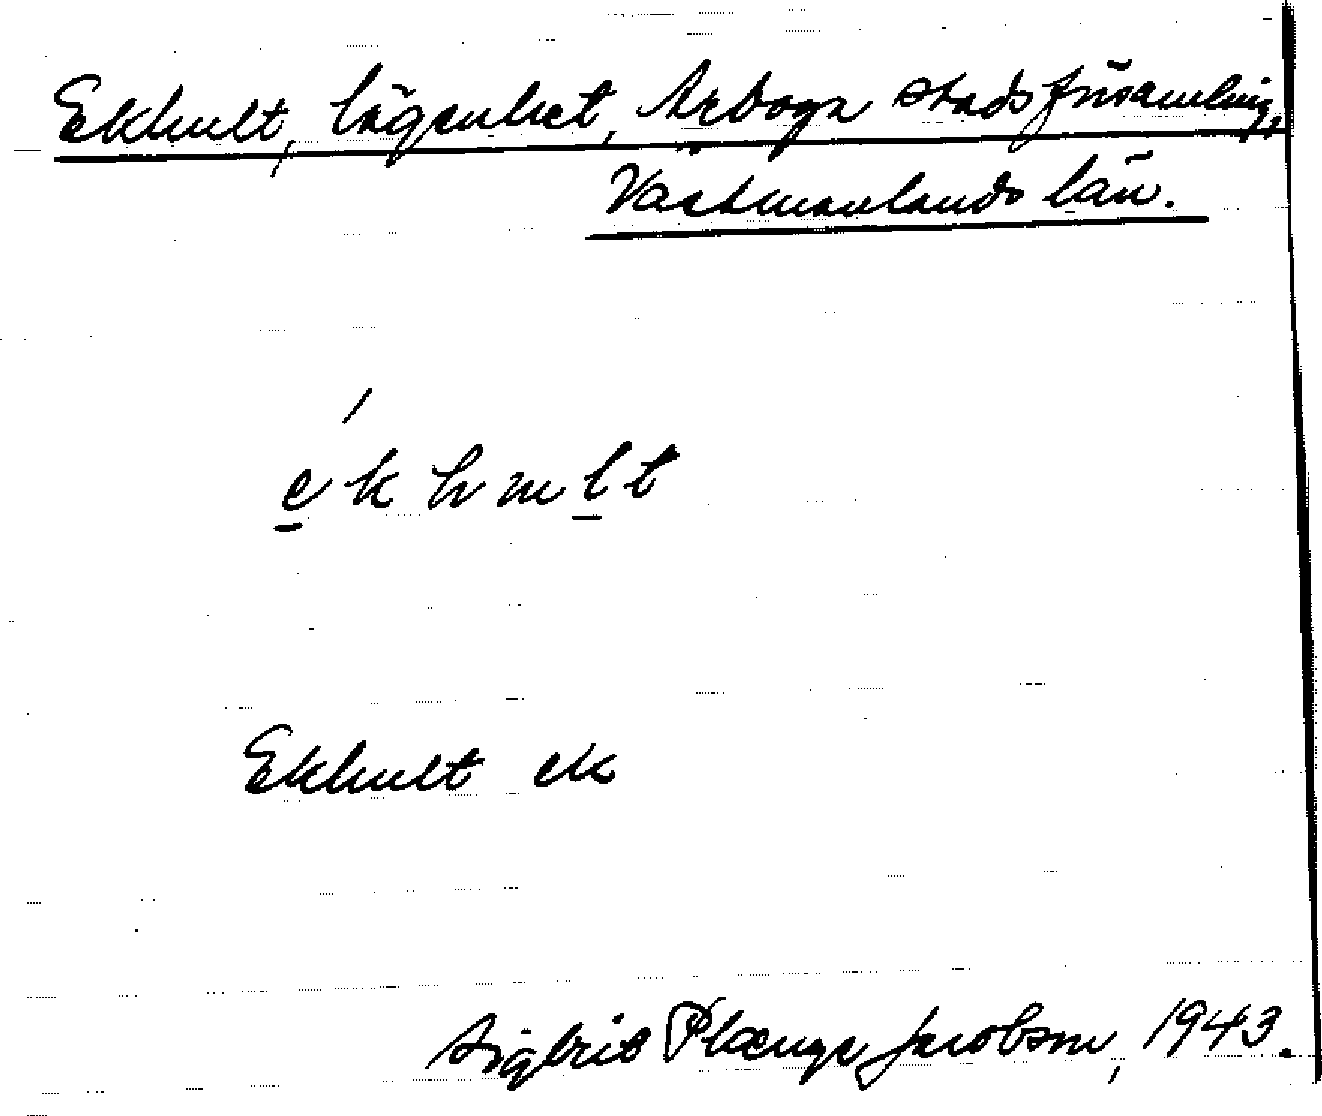 Ekhult, lägenhet, Arboga stadsförsamling,
Västmanlands län.
e̲´khul̲t
Ekhult ek
Sigbrit Plænge Jacobson, 1943.